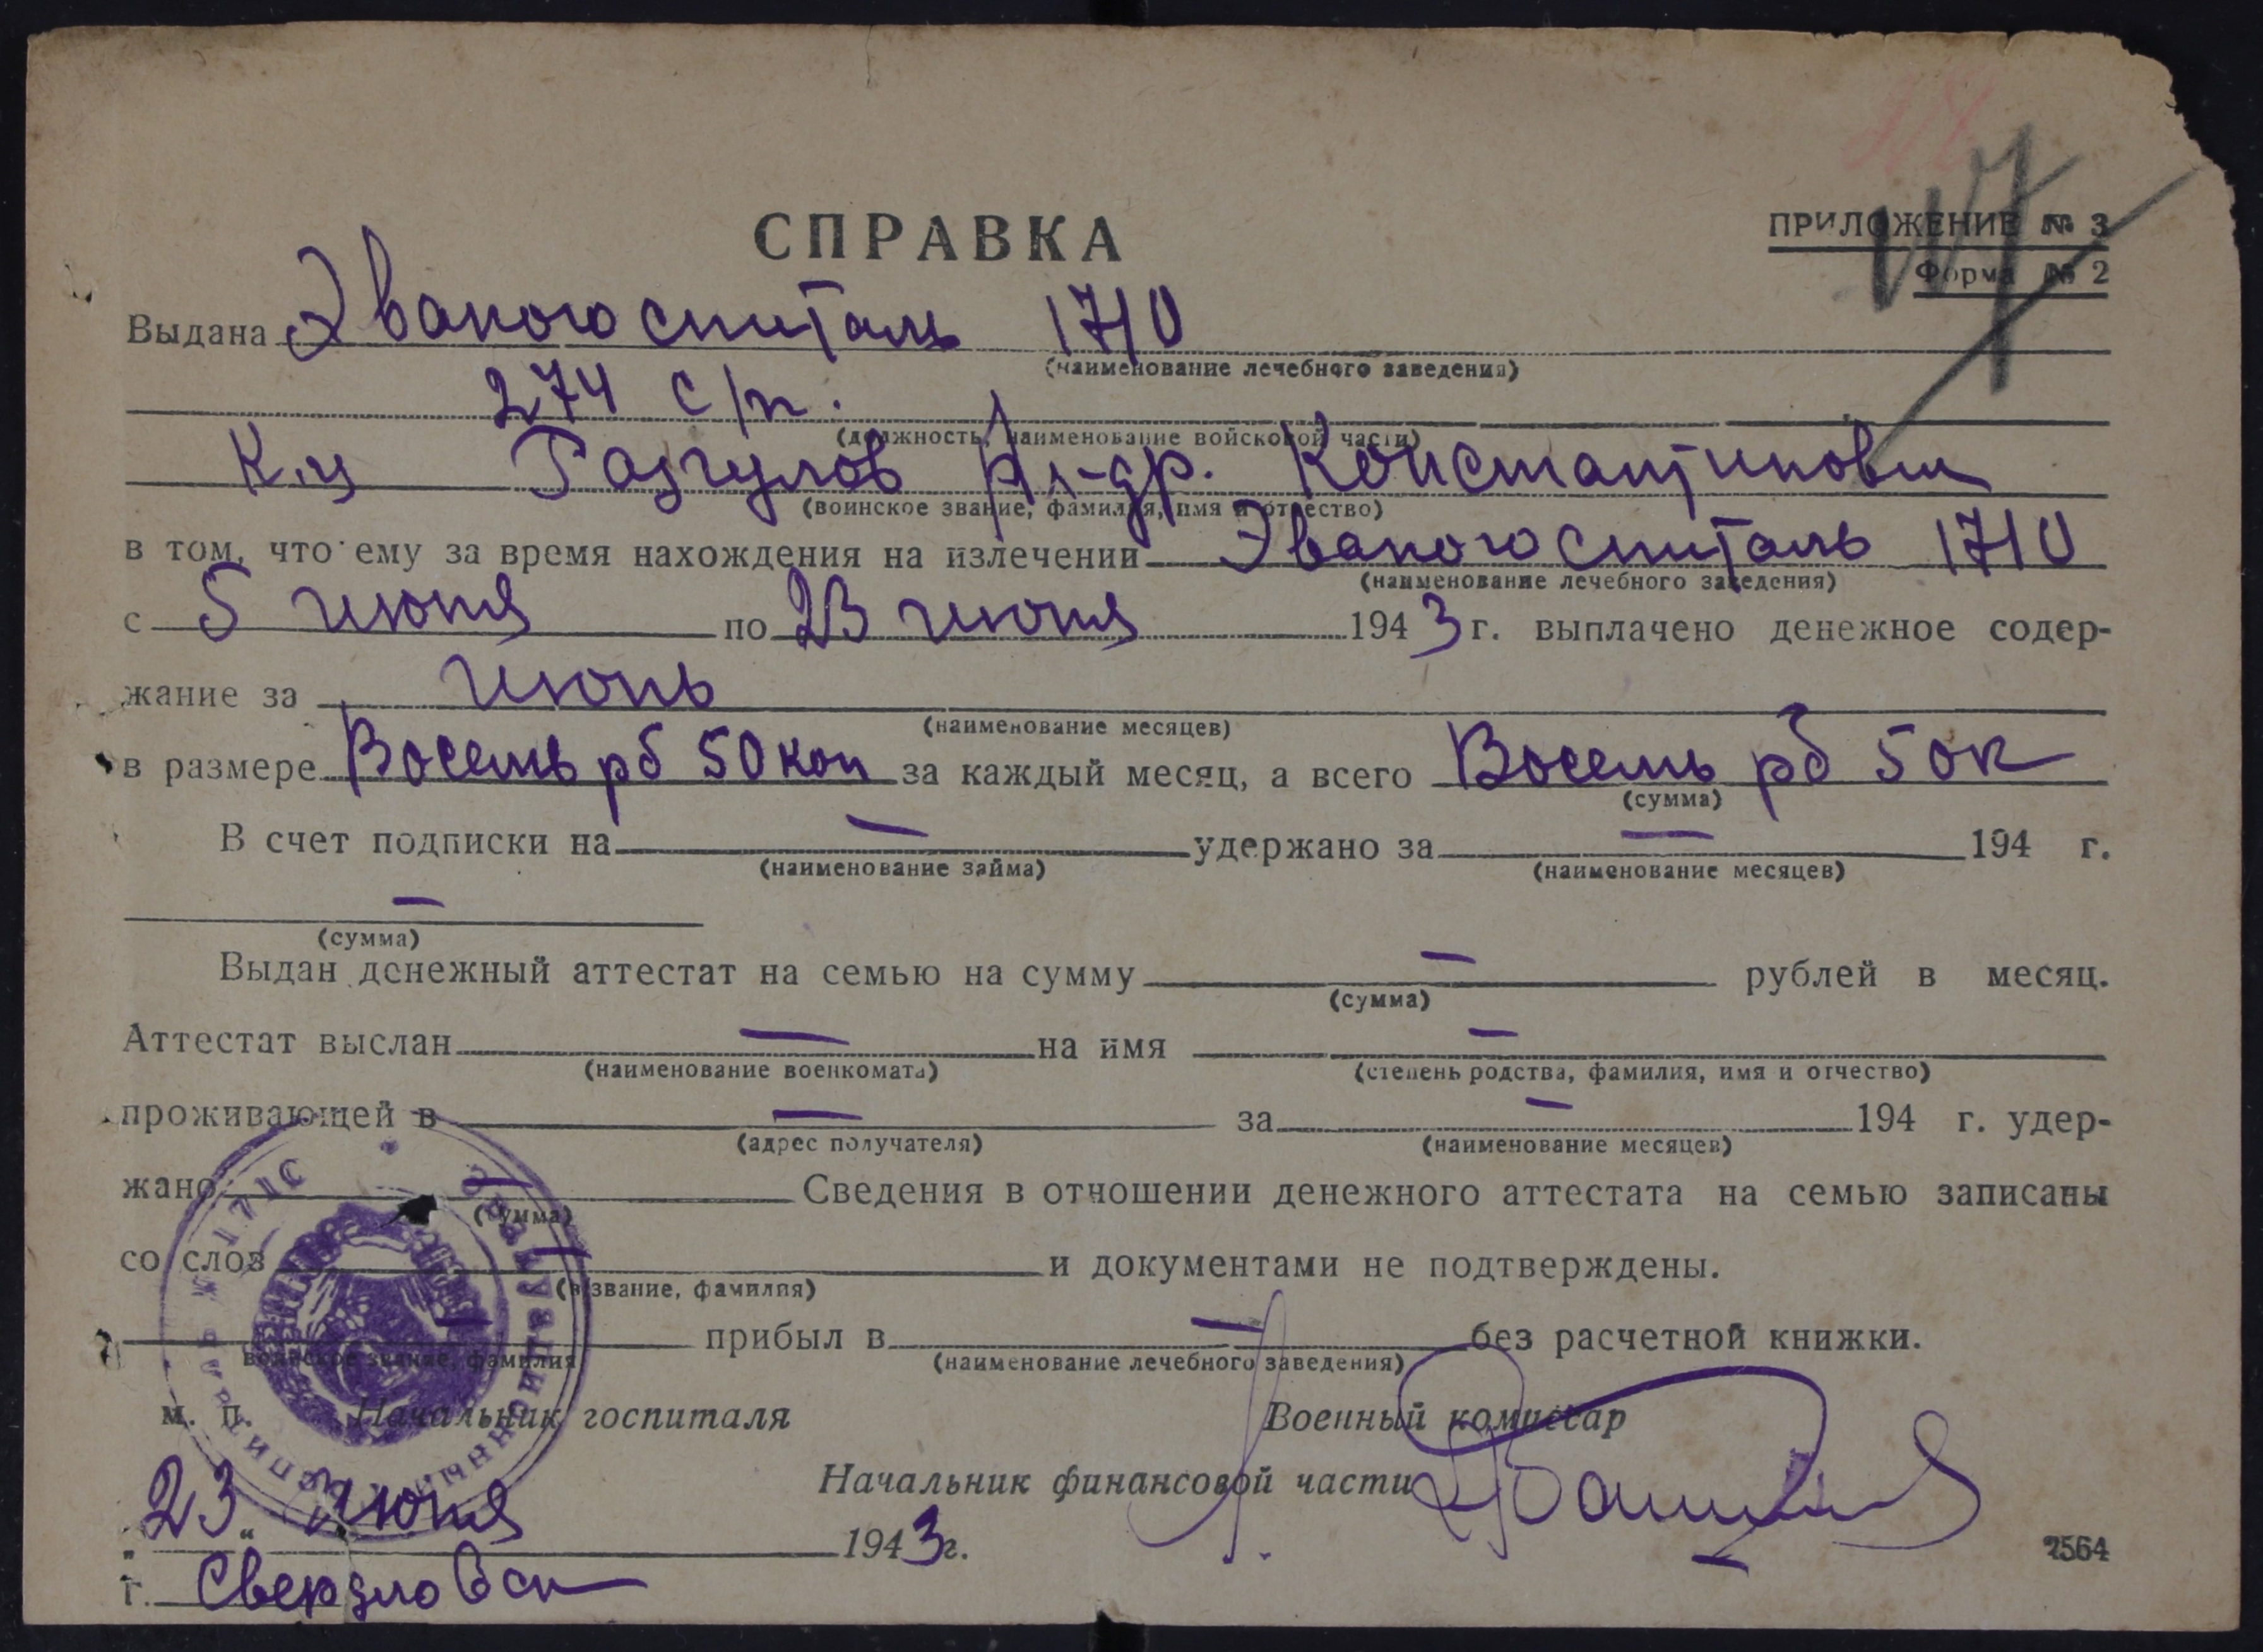 СПРАВКА
ПРИЛОЖЕНИЕ № 3
Форма № 2
Выдана Эвакогоспиталь 1710
(наименование лечебного заведения)
274 с/п.
(должность, наименование войсковой части)
К-ц Разгулов Ал-др. Константинович
(воинское звание, фамилия, имя и отчество)
в том, что ему за время нахождения на излечении Эвакогоспиталь 1710
(наименование лечебного заведения)
с 5 июня по 23 июня 1943 г. выплачено денежное содер-
жание за июнь
(наименование месяцев)
в размере Восемь рб 50 коп за каждый месяц, а всего Восемь рб 50к
(сумма)
В счет подписки на — удержано за — 194 г.
(наименование займа) (наименование месяцев)
—
(сумма)
Выдан денежный аттестат на семью на сумму — рублей в месяц.
(сумма)
Аттестат выслан — на имя —
(наименование военкомата) (степень родства, фамилия, имя и отчество)
проживающей в — за — 194 г. удер-
(адрес получателя) (наименование месяцев)
жано — Сведения в отношении денежного аттестата на семью записаны
(сумма)
со слов — и документами не подтверждены.
(в/звание, фамилия)
— прибыл в — без расчетной книжки.
воинское звание, фамилия (наименование лечебного заведения)
м. п. Начальник госпиталя Военный комиссар
Начальник финансовой части
23 июня 1943 г.
г. Свердловск
2564